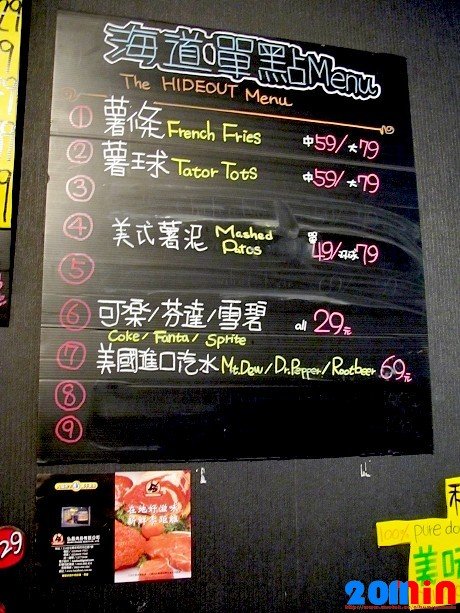 海道單點Menu
The HIDEOUT Menu
① 薯條 French Fries 中59/大79
② 薯球 Tator Tots 中59/大79
③
④ 美式薯泥 Mashed Patos 49/79
⑤
⑥ 可樂/芬達/雪碧 all 29元
Coke/Fanta/Sprite
⑦ 美國進口汽水 Mt.Dew/Dr.Pepper/Rootbeer 69元
⑧
⑨
在地好滋味
新鮮零距離
29
100% pure
美味
20min